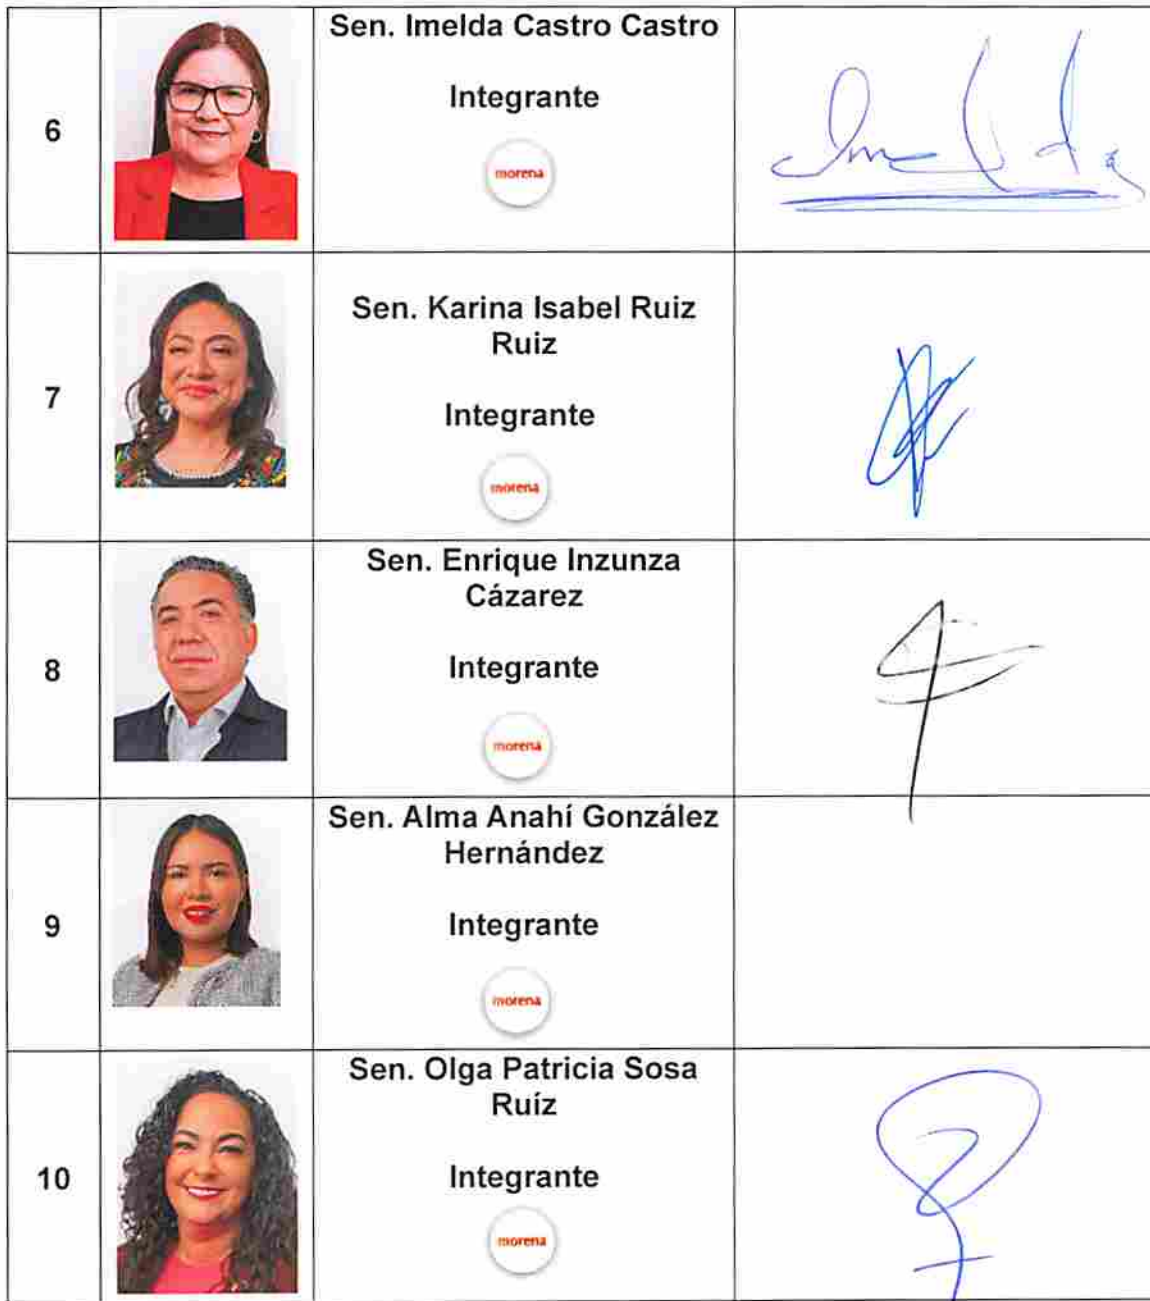 6
Sen. Imelda Castro Castro
Integrante
morena
Imelda
7
Sen. Karina Isabel Ruiz
Ruiz
Integrante
morena
8
Sen. Enrique Inzunza
Cázarez
Integrante
morena
9
Sen. Alma Anahí González
Hernández
Integrante
morena
10
Sen. Olga Patricia Sosa
Ruíz
Integrante
morena